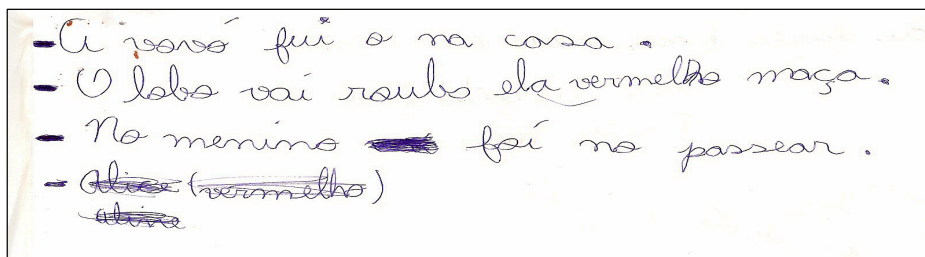 - A vovó fui o na casa.
- O lobo vai roubo ela vermelho maça.
- No menino foi no passear.
- Alice (vermelho)
aline